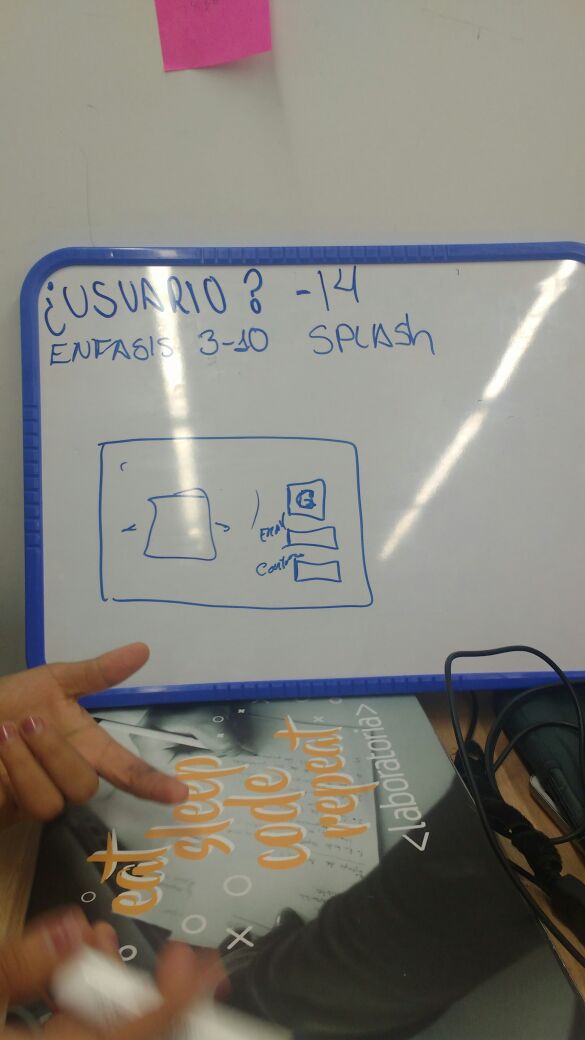 ¿USUARIO? -14
ENFASIS 3-10 SPLASh
G
Email
eat
sleep
code
repeat
<laboratoria>